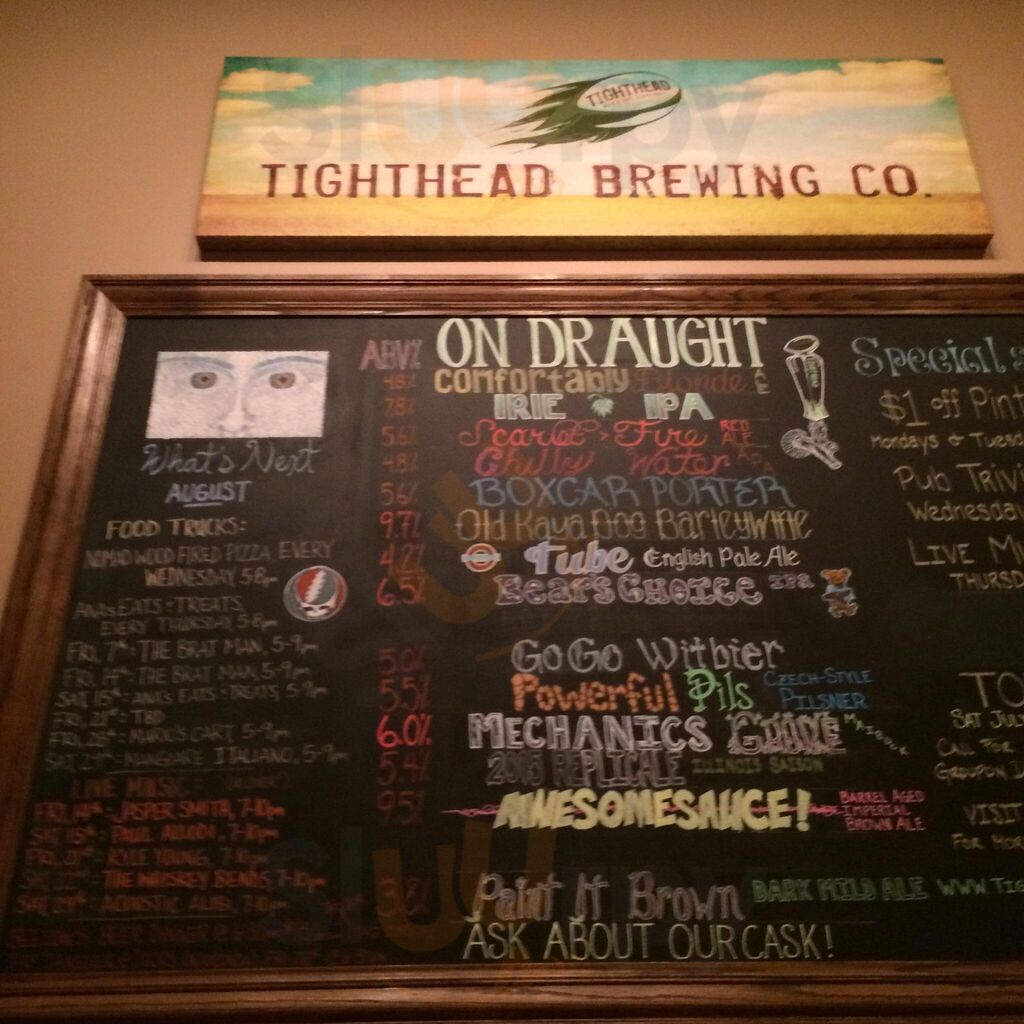 TIGHTHEAD
TIGHTHEAD BREWING CO.
What's Next
AUGUST
FOOD TRUCKS:
NOMAD WOOD FIRED PIZZA, EVERY
WEDNESDAY, 5-8pm
ANA'S EATS + TREATS,
EVERY THURSDAY, 5-8pm
FRI, 7th: THE BRAT MAN, 5-9pm
FRI, 14th: THE BRAT MAN, 5-9pm
SAT, 15th: ANA'S EATS + TREATS, 5-9pm
FRI, 21st: TBD
FRI, 28th: MARIO'S CART, 5-9pm
SAT, 29th: MANGIARE ITALIANO, 5-9pm
LIVE MUSIC:
FRI, 14th: JASPER SMITH, 7-10pm
SAT, 15th: PAUL 7-10pm
FRI, 21st: KYLE YOUNG, 7-10pm
THE WHISKEY BENDS, 7-10pm
SAT, 29th: ACOUSTIC 7-10pm
ABV%
ON DRAUGHT
4.8% Comfortably Blonde
7.8% IRIE IPA
5.6% Scarlet > Fire RED ALE
4.8% Chilly Water APA
5.6% BOXCAR PORTER
9.7% Old Kaya Dog Barleywine
4.2% Tube English Pale Ale
6.5% Bear's Choice IPA
5.0% GoGo Witbier
5.5% Powerful Pils CZECH-STYLE PILSNER
6.0% MECHANICS GRADE MAIBOCK
5.4% 2015 REPLICALE ILLINOIS SAISON
9.5% AWESOMESAUCE! BARREL AGED IMPERIAL BROWN ALE
3.8% Paint It Brown DARK MILD ALE
ASK ABOUT OUR CASK!
Specials
$1 off Pint
Mondays & Tuesd
Pub Trivi
Wednesday
LIVE MU
THURSD
TO
SAT JULY
CALL FOR
GROUPON
VISIT
FOR MOR
WWW.TIG
slurpy
slurpy